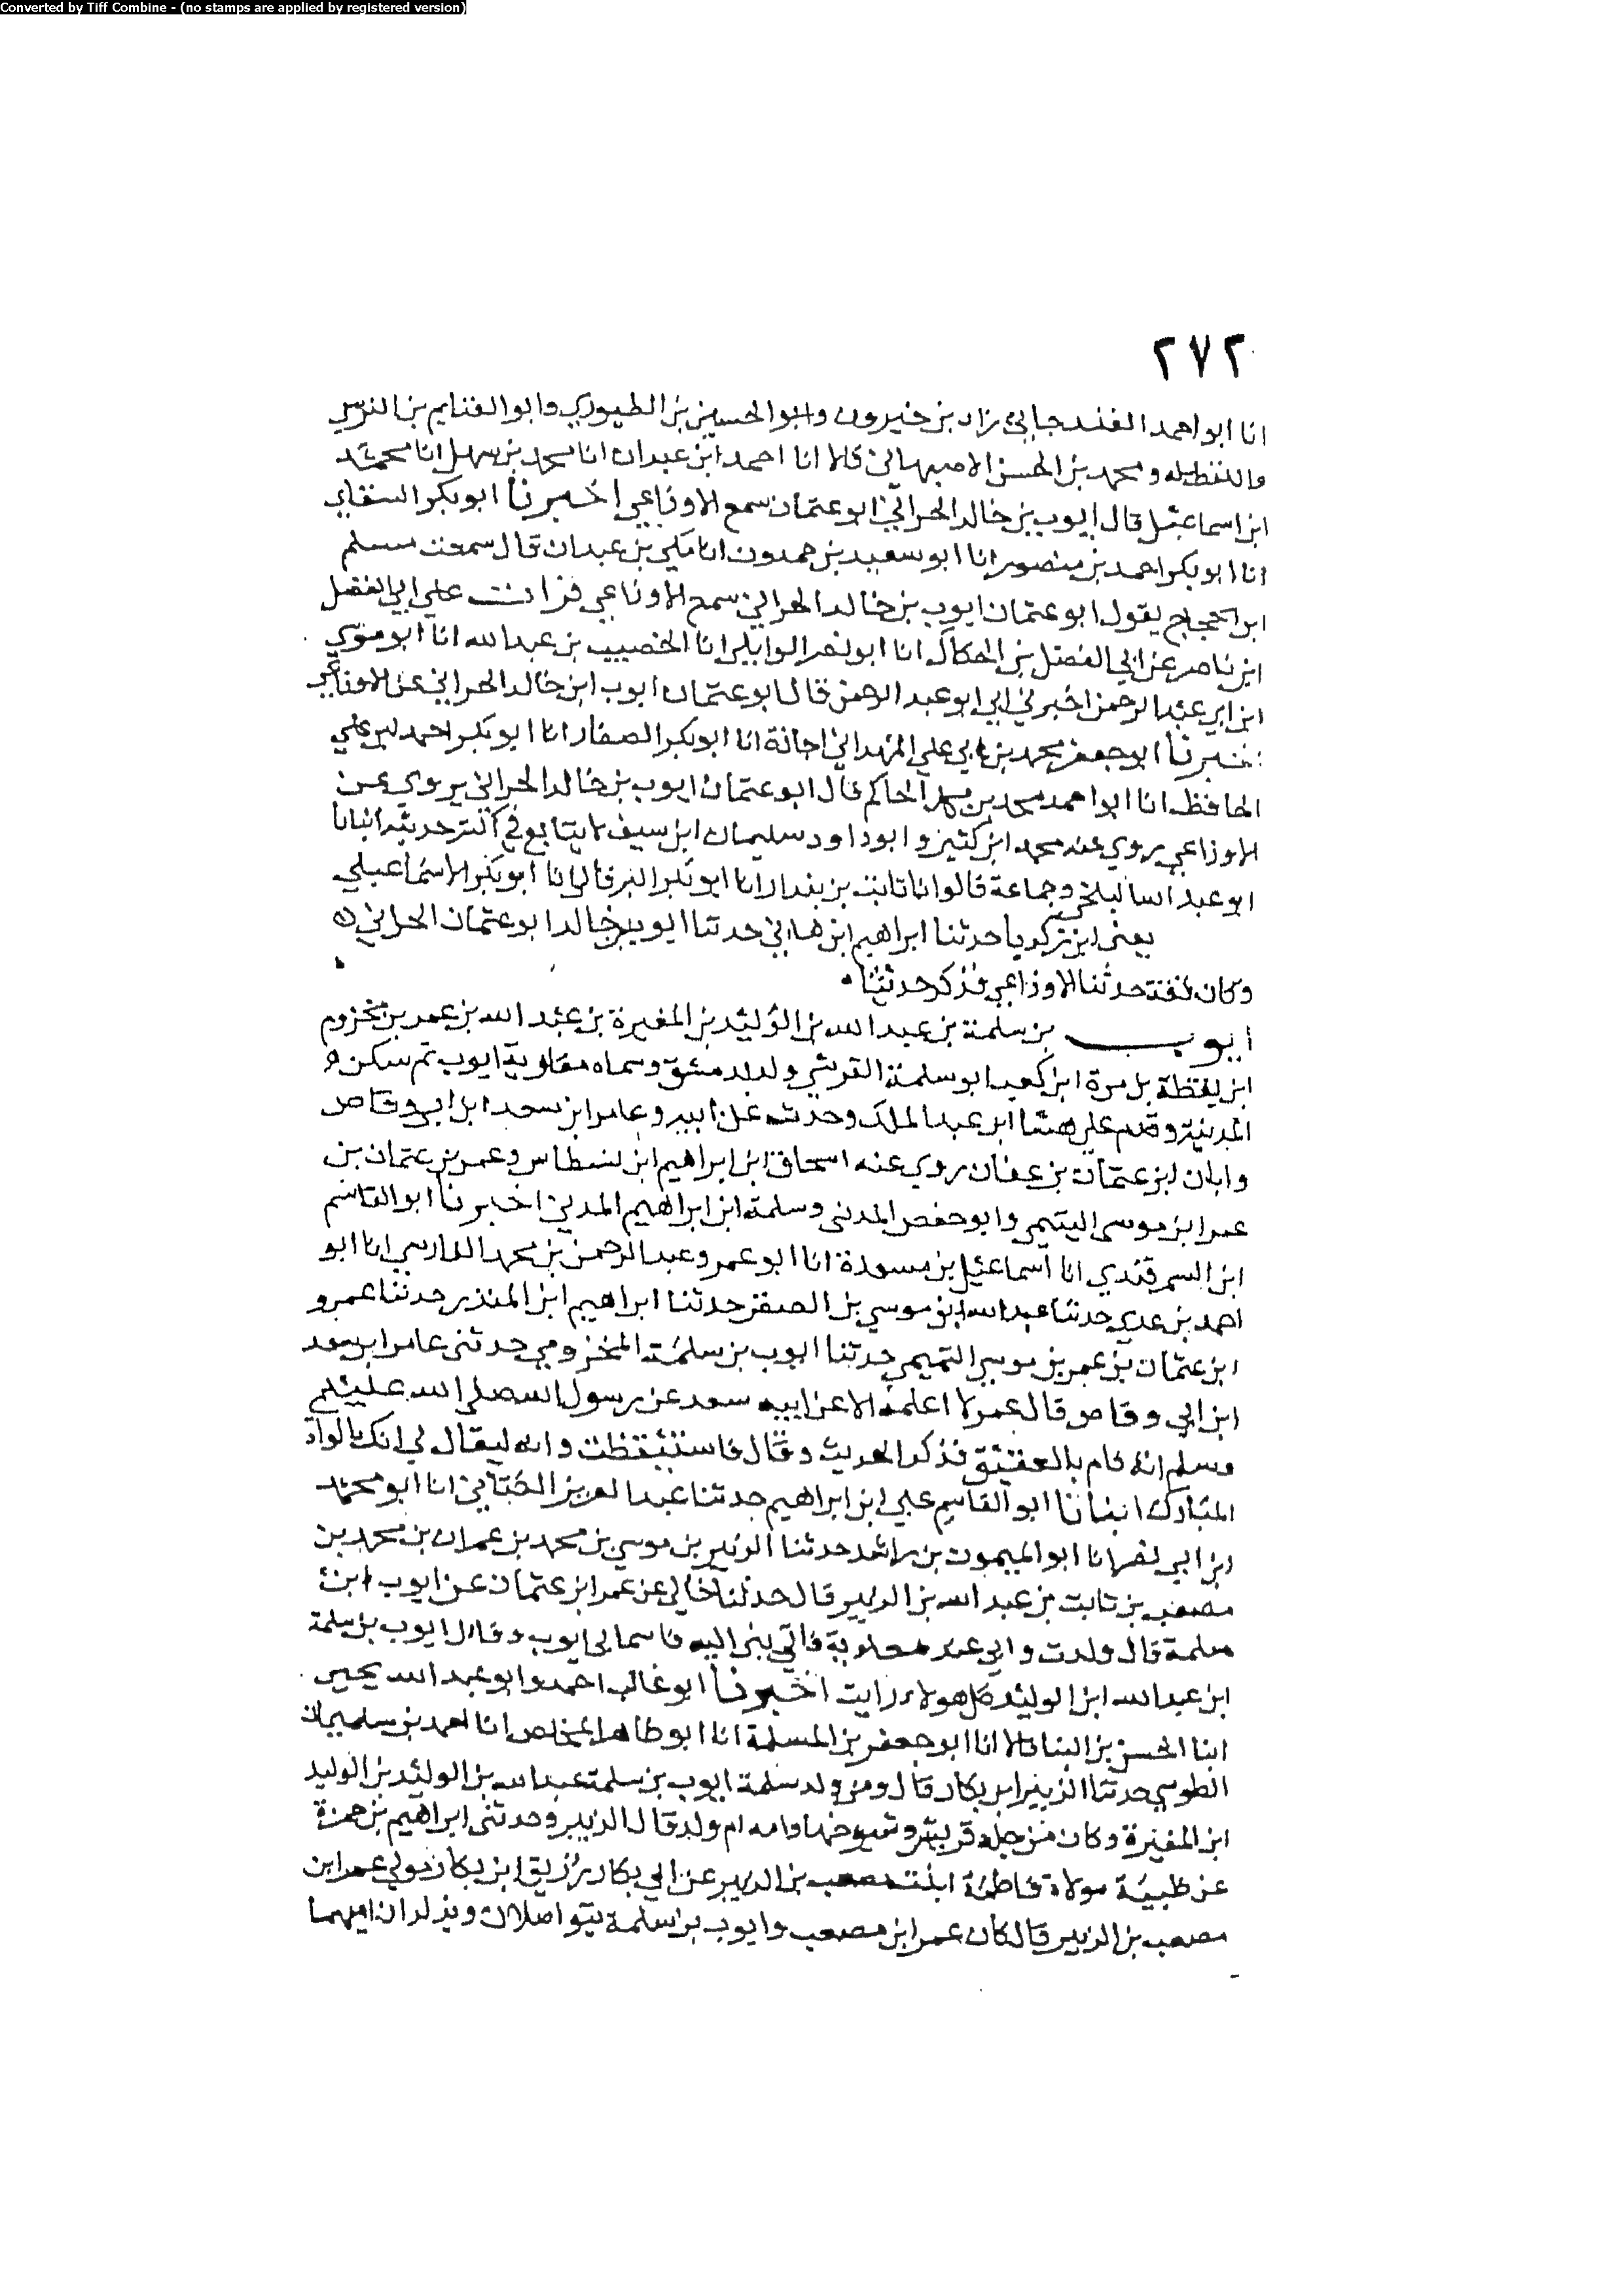 Converted by Tiff Combine - (no stamps are applied by registered version)
٢٧٢
انا ابو احمد الغندجاني زاد بن خيرون وابو الحسين بن الطيوري وابو الغنايم بن النرسي
واللفظ له ومحمد بن الحسن الاصبهاني قالا انا احمد ابن عبدان انا محمد بن سهل انا محمد
ابن اسماعيل قال ايوب بن خالد الحراني ابو عثمان سمع الاوزاعي اخبرنا ابو بكر الشقاني
انا ابو بكر احمد بن منصور انا ابو سعيد بن حمدون انا مكي بن عبدان قال سمعت مسلم
ابن الحجاج يقول ابو عثمان ايوب بن خالد الحراني سمع الاوزاعي قرات على ابي الفضل
ابن ناصر عن ابي الفضل بن الحكاك انا ابو نصر الوايلي انا الخصيب بن عبد الله انا ابو موسي
ابن ابي عبد الرحمن اخبرني ابي ابو عبد الرحمن قال ابو عثمان ايوب ابن خالد الحراني عن الاوزاعي
اخبرنا ابو جعفر محمد بن ابي علي الهمداني اجازة انا ابو بكر الصفار انا ابو بكر احمد بن علي
الحافظ انا ابو احمد محمد بن محمد الحاكم قال ابو عثمان ايوب بن خالد الحراني يروي عن
الاوزاعي روي عنه محمد ابن كثير وابو داود سليمان ابن سيف لا يتابع في اكثر حديثه انبانا
ابو عبد الله البلخي وجماعة قالوا انا ثابت بن بندار انا ابو بكر البرقاني انا ابو بكر الاسماعيلي
يعني ابن زكريا حدثنا ابراهيم ابن هاني حدثنا ايوب بن خالد ابو عثمان الحراني
وكان ثقة حدثنا الاوزاعي فذكر حديثا
ايوب بن سلمة بن عبد الله بن الوليد بن المغيرة بن عبد الله بن عمر بن مخزوم
ابن يقظة بن مرة ابن كعب ابو سلمة القرشي ولد بدمشق وسماه معاوية ايوب ثم سكن
المدينة وقدم علي هشام ابن عبد الملك وحدث عن ابيه وعامر ابن سعد ابن ابي وقاص
وابان ابن عثمان بن عفان روي عنه اسحاق ابن ابراهيم ابن نسطاس وعمر بن عثمان بن
عمر ابن موسى التيمي وابو حفص المدني وسلمة ابن ابراهيم المدني اخبرنا ابو القاسم
ابن السمرقندي انا اسماعيل بن مسعدة انا ابو عمرو عبد الرحمن بن محمد الفارسي انا ابو
احمد بن عدي حدثنا عبد الله ابن موسي بن الصقر حدثنا ابراهيم ابن المنذر حدثنا عمرو
ابن عثمان بن عمر بن موسي التميمي حدثنا ايوب بن سلمة المخزومي حدثني عامر ابن سعد
ابن ابي وقاص قال عمر لا اعلمه الا عن ابيه سعد عن رسول الله صلى الله عليه
وسلم انه نام بالعقيق فذكر الحديث وقال فاستيقظت وانه ليقال لي انك بالواد
المبارك انبانا ابو القاسم علي ابن ابراهيم حدثنا عبد العزيز الكتاني انا ابو محمد
ابن ابي نصر انا ابو الميمون بن راشد حدثنا الزبير بن موسي بن محمد بن عمران بن محمد بن
مصعب بن ثابت بن عبد الله بن الزبير قال حدثنا خالي عن عمر ابن عثمان عن ايوب ابن
سلمة قال ولدت وابي عند معاوية فاتي بي اليه فاسماني ايوب وقال ايوب بن سلمة
ابن عبد الله ابن الوليد كل هولاء رايت اخبرنا ابو غالب احمد وابو عبد الله يحيى
ابنا الحسن بن البنا قالا انا ابو جعفر بن المسلمة انا ابو طاهر المخلص انا احمد بن سليمان
الطوسي حدثنا الزبير ابن بكار قال ومن ولد سلمة ايوب بن سلمة عبد الله بن الوليد بن الوليد
ابن المغيرة وكان من جلة قريش وشيوخها وامه ام ولد قال الزبير وحدثني ابراهيم بن حمزة
عن ظبية مولاة فاطمة ابنت مصعب بن الزبير عن ابي بكار رزيق ابن بكار مولي عمر ابن
مصعب بن الزبير قال كان عمر ابن مصعب وايوب بن سلمة يتواصلان ان ايهما